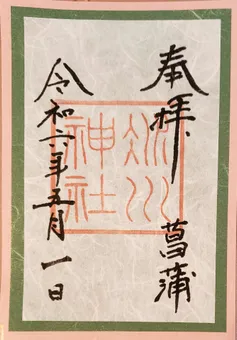 奉拝
菖蒲
氷川
神社
令和六年五月一日